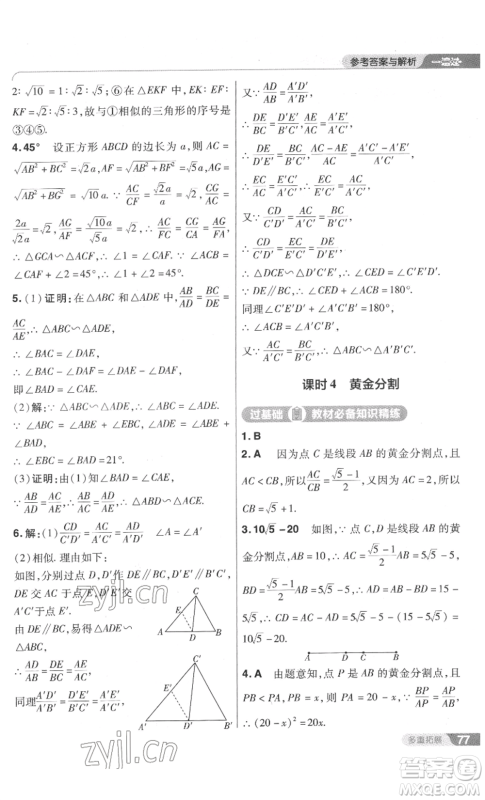 参考答案与解析 一遍过
2:√10 = 1:√2:√5;⑥在△EKF中,EK:EF:
KF = √2:√5:3,故与①相似的三角形的序号是
③④⑤.
4.45° 设正方形ABCD的边长为a,则AC =
√(AB² + BC²) = √2 a,AF = √(AB² + BF²) = √5 a,AG =
√(AB² + BG²) = √10 a. ∵ AC/CF = √2 a/a = √2,CG/CA =
2a/√2 a = √2,AG/AF = √10 a/√5 a = √2,∴ AC/CF = CG/CA = AG/AF,
∴ △GCA∽△ACF,∴ ∠1 = ∠CAF. ∵ ∠ACB =
∠CAF + ∠2 = 45°,∴ ∠1 + ∠2 = 45°.
5.(1)证明:在△ABC和△ADE中,AB/AD = BC/DE =
AC/AE,∴ △ABC∽△ADE,
∴ ∠BAC = ∠DAE,
∴ ∠BAC − ∠DAF = ∠DAE − ∠DAF,
即∠BAD = ∠CAE.
(2)解:∵ △ABC∽△ADE,∴ ∠ABC = ∠ADE.
∵ ∠ABC = ∠ABE + ∠EBC,∠ADE = ∠ABE +
∠BAD,∴ ∠EBC = ∠BAD = 21°.
(3)证明:由(1)知∠BAD = ∠CAE.
又∵ AB/AD = AC/AE,∴ △ABD∽△ACE.
6.解:(1)CD/C′D′ = AC/A′C′ = AD/A′D′ ∠A = ∠A′
(2)相似. 理由如下:
如图,分别过点D,D′作DE∥BC,D′E′∥B′C′,
DE交AC于点E,D′E′交
A′C′于点E′.
由DE∥BC,得△ADE∽
△ABC,
∴ AD/AB = DE/BC = AE/AC.
同理A′D′/A′B′ = D′E′/B′C′ = A′E′/A′C′.
C
E
A D B
C′
E′
A′ D′ B′
又∵ AD/AB = A′D′/A′B′,
∴ DE/BC = D′E′/B′C′,AE/AC = A′E′/A′C′,
∴ DE/D′E′ = BC/B′C′,(AC − AE)/AC = (A′C′ − A′E′)/A′C′,
∴ EC/AC = E′C′/A′C′,
∴ EC/E′C′ = AC/A′C′.
又∵ CD/C′D′ = AC/A′C′ = BC/B′C′,
∴ CD/C′D′ = DE/D′E′ = EC/E′C′,
∴ △DCE∽△D′C′E′,∴ ∠CED = ∠C′E′D′.
又∵ DE∥BC,∴ ∠CED + ∠ACB = 180°.
同理∠C′E′D′ + ∠A′C′B′ = 180°,
∴ ∠ACB = ∠A′C′B′.
又∵ AC/A′C′ = BC/B′C′,∴ △ABC∽△A′B′C′.
课时4 黄金分割
过基础 教材必备知识精练
1.B
2.A 因为点C是线段AB的黄金分割点,且
AC < CB,所以AC/CB = (√5 − 1)/2. 因为AC = 2,所以
CB = √5 + 1.
3.10√5 − 20 如图,∵ 点C,D是线段AB的黄
金分割点,AB = 10,∴ AC = (√5 − 1)/2 AB = 5√5 − 5,
BD = (√5 − 1)/2 AB = 5√5 − 5,∴ AD = AB − BD = 15 −
5√5,∴ CD = AC − AD = 5√5 − 5 − (15 − 5√5) =
10√5 − 20.
A D C B
4.A 由题意知,点P是AB的黄金分割点,且
PB < PA,PB = x,则PA = 20 − x,∵ BP/AP = AP/AB,
∴ (20 − x)² = 20x.
多重拓展 77
zyjl.cn
zyjl.cn
答案圈
MXQE.COM